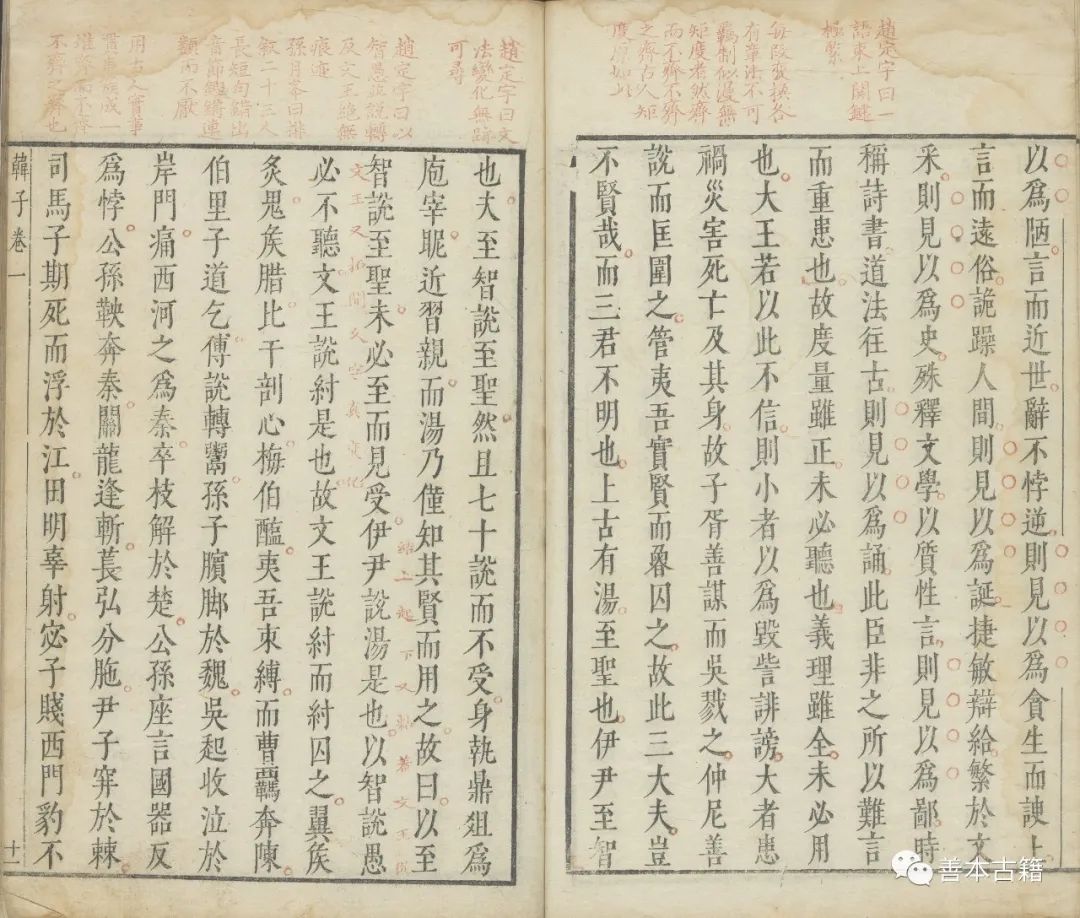 趙定宇曰一
語束上關鍵
極緊
每段變換各
有章法不可
羈制似漫無
矩度者然齊
而不齊不齊
之齊古人矩
度原如此
以爲陋言而近世辭不悖逆則見以爲貪生而諛上
言而遠俗詭躁人間則見以爲誕捷敏辯給繁於文
采則見以爲史殊釋文學以質性言則見以爲鄙時
稱詩書道法往古則見以爲誦此臣非之所以難言
而重患也故度量雖正未必聽也義理雖全未必用
也大王若以此不信則小者以爲毀訾誹謗大者患
禍災害死亡及其身故子胥善謀而吳戮之仲尼善
說而匡圍之管夷吾實賢而魯囚之故此三大夫豈
不賢哉而三君不明也上古有湯至聖也伊尹至智
趙定宇曰文
法變化無跡
可尋
趙定宇曰以
智愚疾說轉
及文王絶無
痕迹
孫月峯曰排
叙二十三人
長短句錯出
音節鏗鏘連
類而不厭
用古人實事
不齊之齊也
也夫至智說至聖然且七十說而不受身執鼎俎爲
庖宰昵近習親而湯乃僅知其賢而用之故曰以至
智說至聖未必至而見受伊尹說湯是也以智說愚
文王又
結上起下又
必不聽文王說紂是也故文王說紂而紂囚之翼侯
炙鬼侯腊比干剖心梅伯醢夷吾束縛而曹羈奔陳
伯里子道乞傅說轉鬻孫子臏脚於魏吳起收泣於
岸門痛西河之爲秦卒枝解於楚公孫座言國器反
爲悖公孫鞅奔秦關龍逢斬萇弘分胣尹子穽於棘
司馬子期死而浮於江田明辜射宓子賤西門豹不
韓子卷一
十一
善本古籍